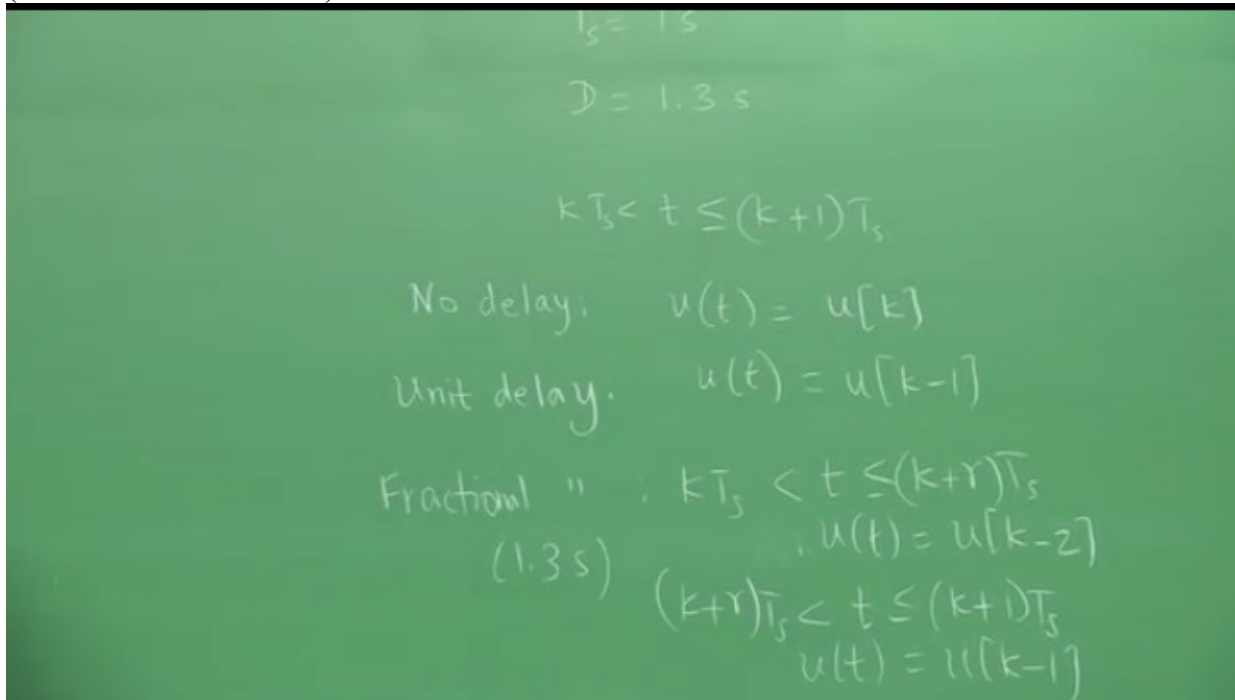 T_s = 1 s
D = 1.3 s
k T_s < t ≤ (k+1) T_s
No delay: u(t) = u[k]
Unit delay. u(t) = u[k-1]
Fractional " : k T_s < t ≤ (k+r) T_s
(1.3 s) , u(t) = u[k-2]
(k+r) T_s < t ≤ (k+1) T_s
u(t) = u[k-1]